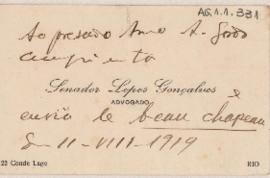 AG.1.1.331
Ao presado Amo A.
cumprimenta
Senador Lopes Gonçalves
ADVOGADO
e
envia le beau chapeau
11-VIII-1919
22 Conde Lage
RIO